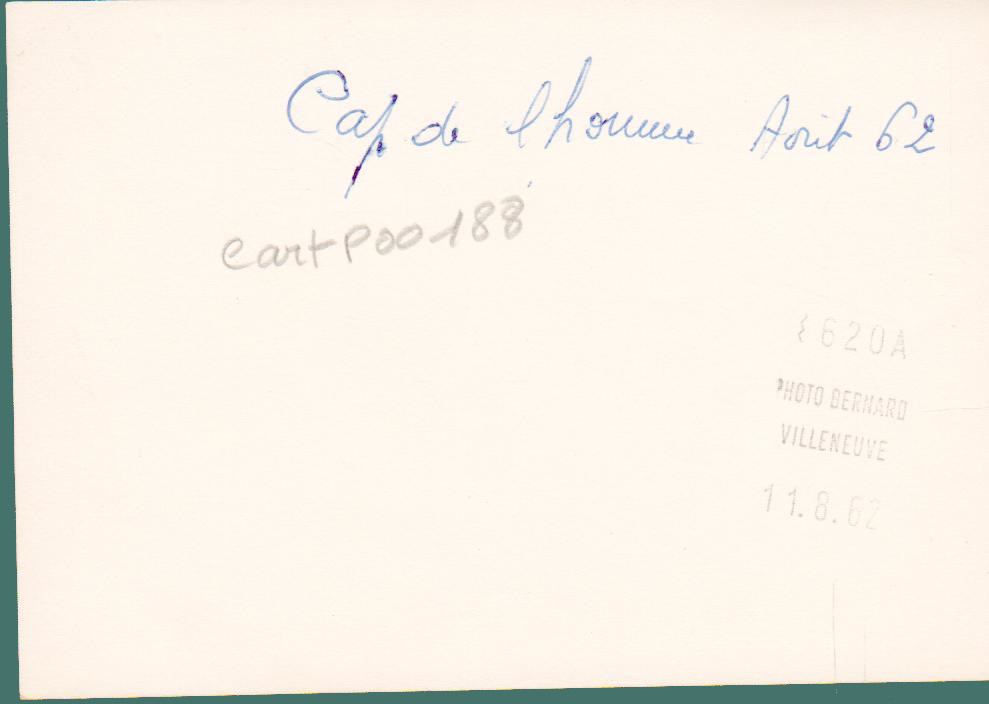 Cap de l'homme Août 62
CartP00188
620A
PHOTO BERNARD
VILLENEUVE
11.8.62